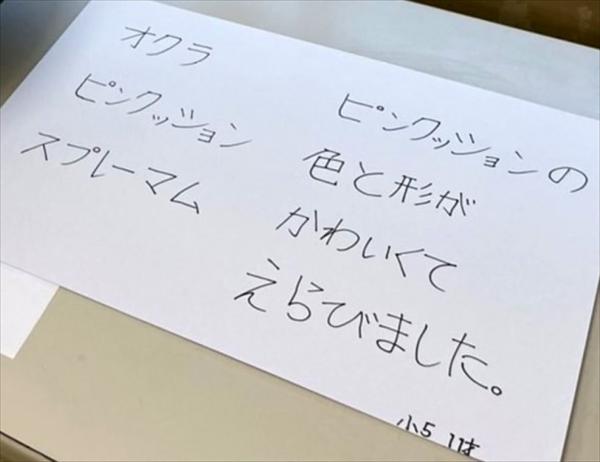 オクラ
ピンクッション
スプレーマム
ピンクッションの
色と形が
かわいくて
えらびました。
小5 11才